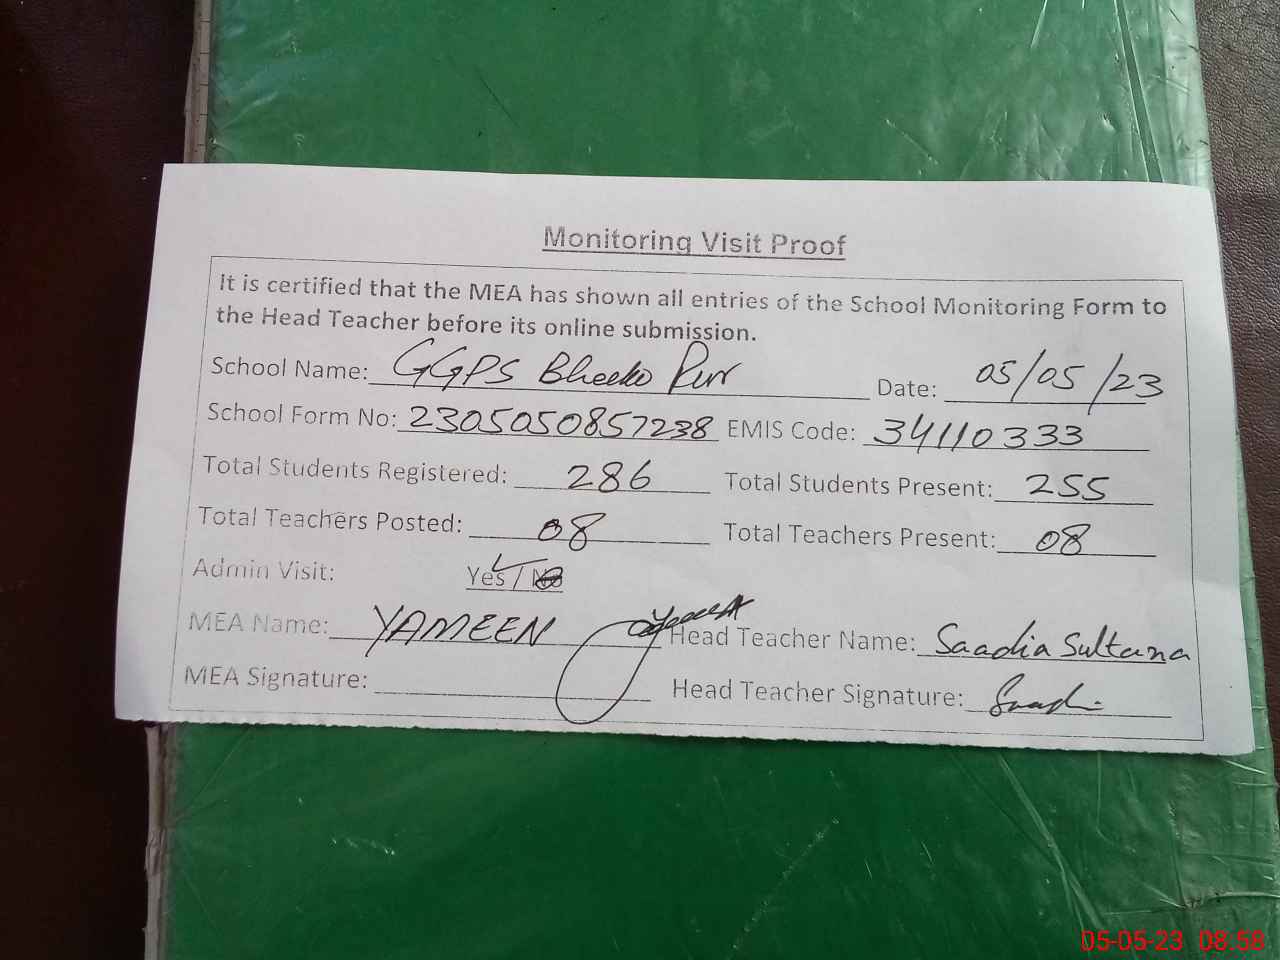 Monitoring Visit Proof
It is certified that the MEA has shown all entries of the School Monitoring Form to
the Head Teacher before its online submission.
School Name: GGPS Bheeko Pur Date: 05/05/23
School Form No: 2305050857238 EMIS Code: 34110333
Total Students Registered: 286 Total Students Present: 255
Total Teachers Posted: 08 Total Teachers Present: 08
Admin Visit: Yes / No
MEA Name: YAMEEN Head Teacher Name: Saadia Sultana
MEA Signature: Head Teacher Signature:
05-05-23 08:58